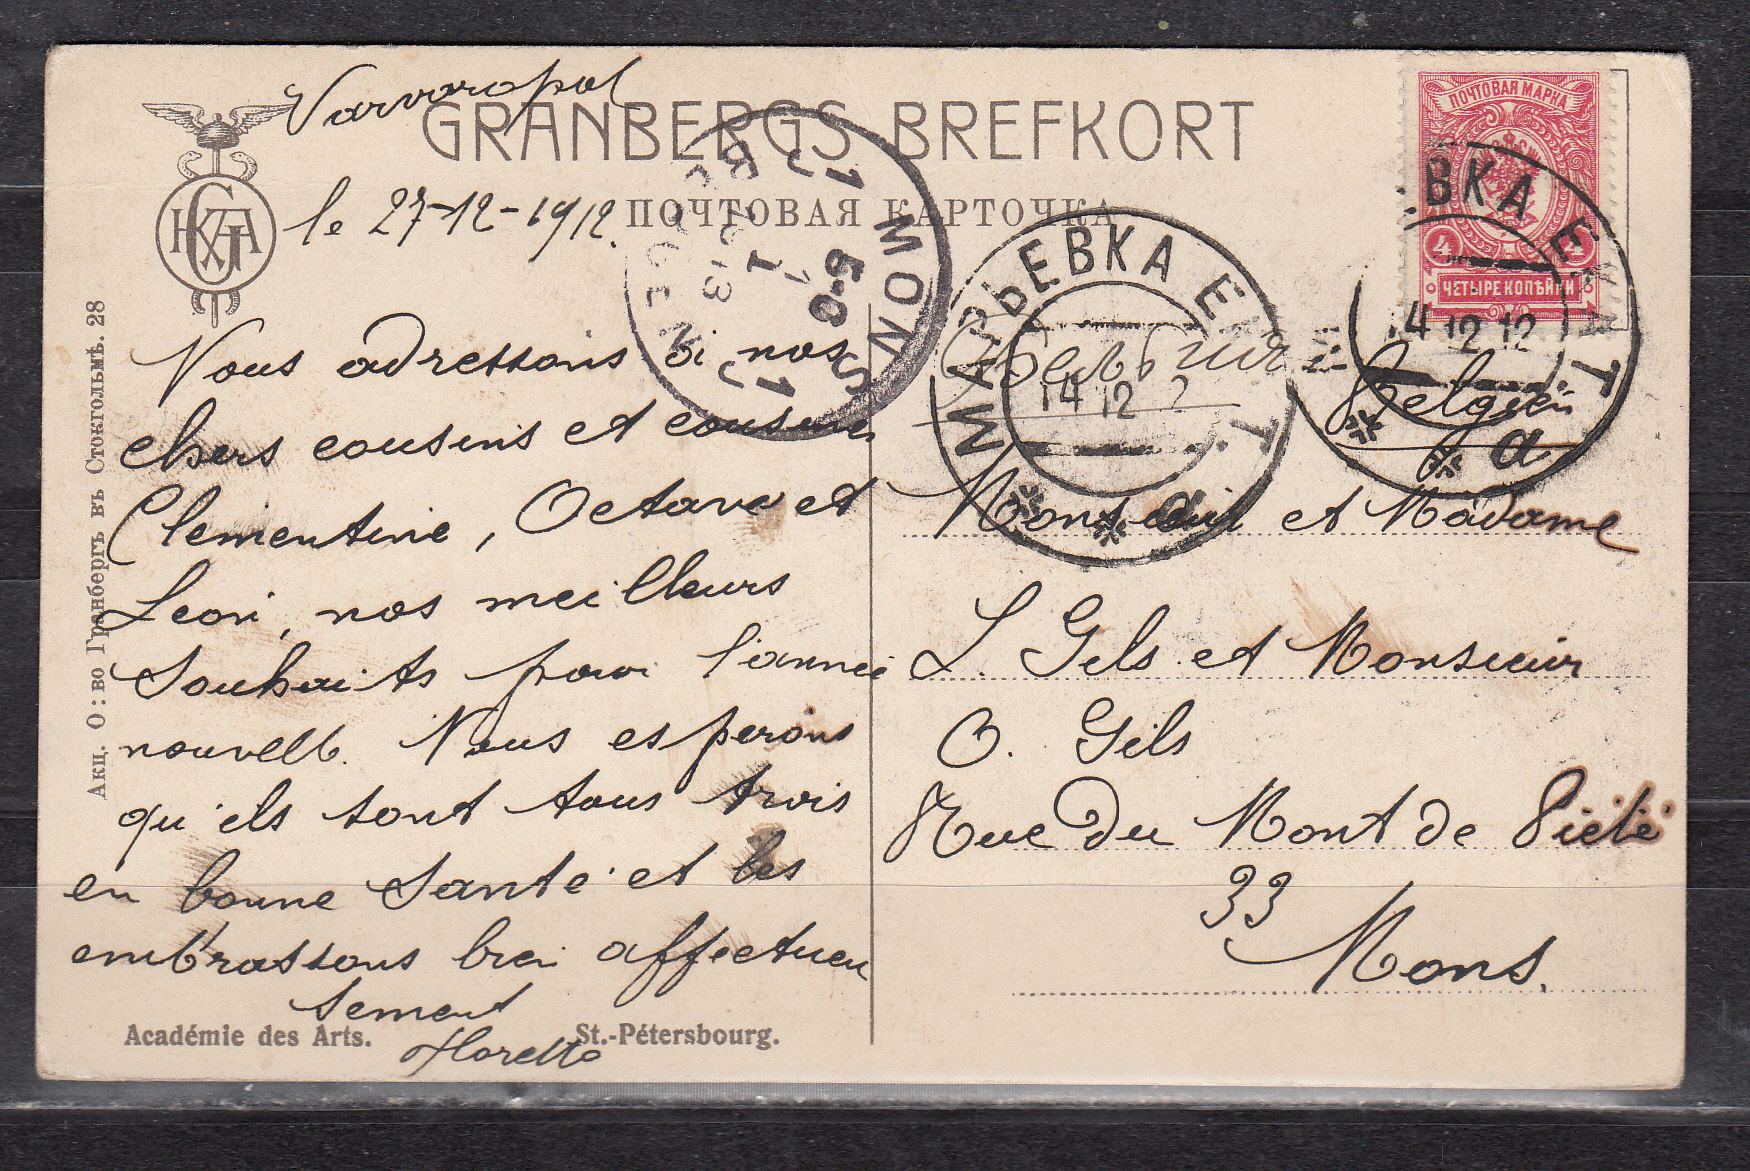 Varvaropol
GRANBERGS BREFKORT
le 27-12-1912.
ПОЧТОВАЯ КАРТОЧКА
ПОЧТОВАЯ МАРКА
4 4
ЧЕТЫРЕ КОПѢЙКИ
МАРЬЕВКА ЕКАТ.
14 12
а
ВКА ЕКАТ
14 12 12
а
MONS
BERGEN
1 1
Акц. О:во Гранбергъ въ Стокгольмѣ. 28
Vous adressons à nos
chers cousins et cousine
Clementine, Octave et
Leon, nos meilleurs
souhaits pour l'année
nouvelle. Nous esperons
qu'ils sont tous trois
en bonne santé et les
embrassons bien affectueu
sement
Académie des Arts. St.-Pétersbourg.
Бельгия
Belgien
Monsieur et Madame
L. Gils et Monsieur
O. Gils
Rue du Mont de Piété
33
Mons.